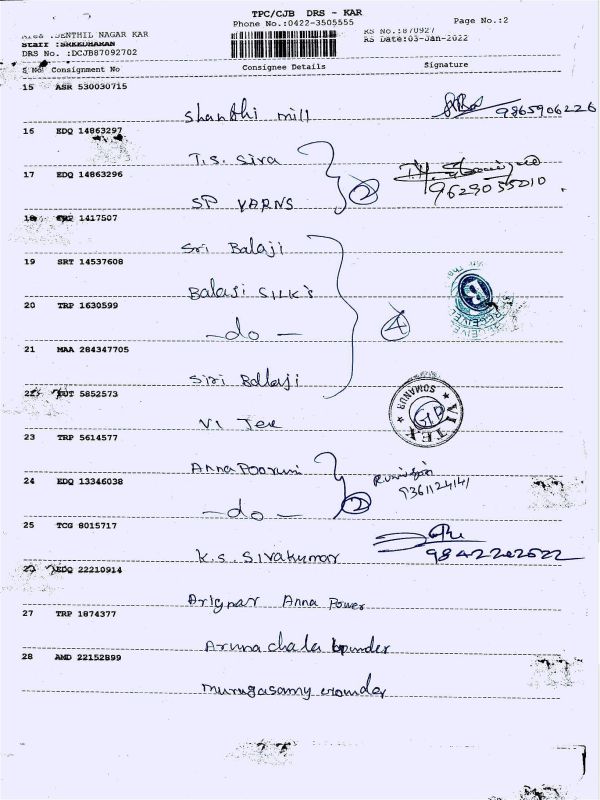 TPC/CJB DRS - KAR
Phone No.:0422-3505555
Page No.:2
Area :SENTHIL NAGAR KAR
RS No.:870927
Staff :SREEDHARAN
RS Date:03-Jan-2022
DRS No. :DCJB87092702
S No. Consignment No Consignee Details Signature
15 ASR 530030715
Shanthi mill 9865906226
16 EDQ 14863297
T.S. Siva
17 EDQ 14863296
2 9629055010
SP YARNS
18 1417507
Sri Balaji
19 SRT 14537608
Balaji SILK's
20 TRP 1630599
— do — 4
21 MAA 284347705
Siri Ballaji
5852573
VI Tex
VI TEX SOMANUR
23 TRP 5614577
Anna Poorani
24 EDQ 13346038
— do — 2
25 TCG 8015717
K.S. Sivakumar
EDQ 22210914
Arignar Anna Power
27 TRP 1874377
Arunachala
28 AMD 22152899
Murugasamy